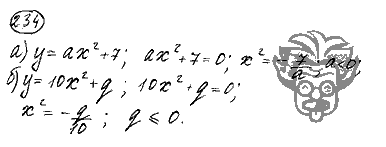 234
а) y = ax² + 7; ax² + 7 = 0; x² = -7/a; a < 0;
б) y = 10x² + g; 10x² + g = 0;
x² = -g/10; g ≤ 0.